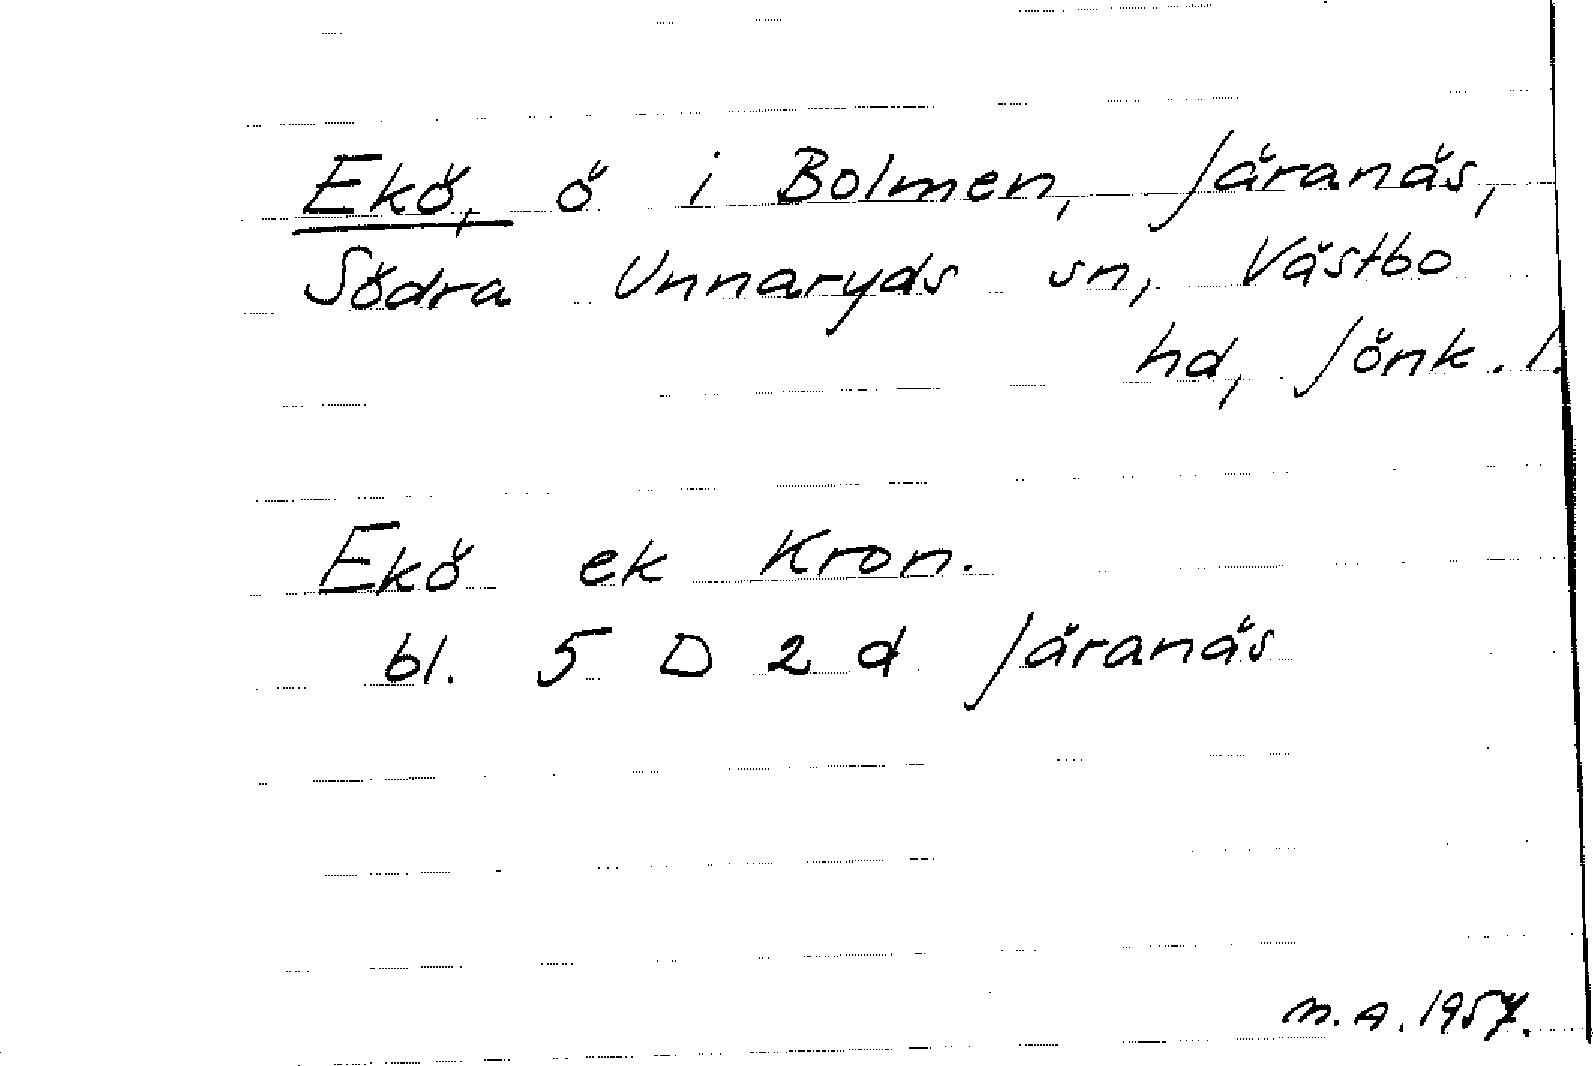 Ekö, ö i Bolmen, Järanäs,
Södra Unnaryds sn, Västbo
hd, Jönk. l.
Ekö ek Kron.
bl. 5 D 2 d Järanäs
M.A. 1957.